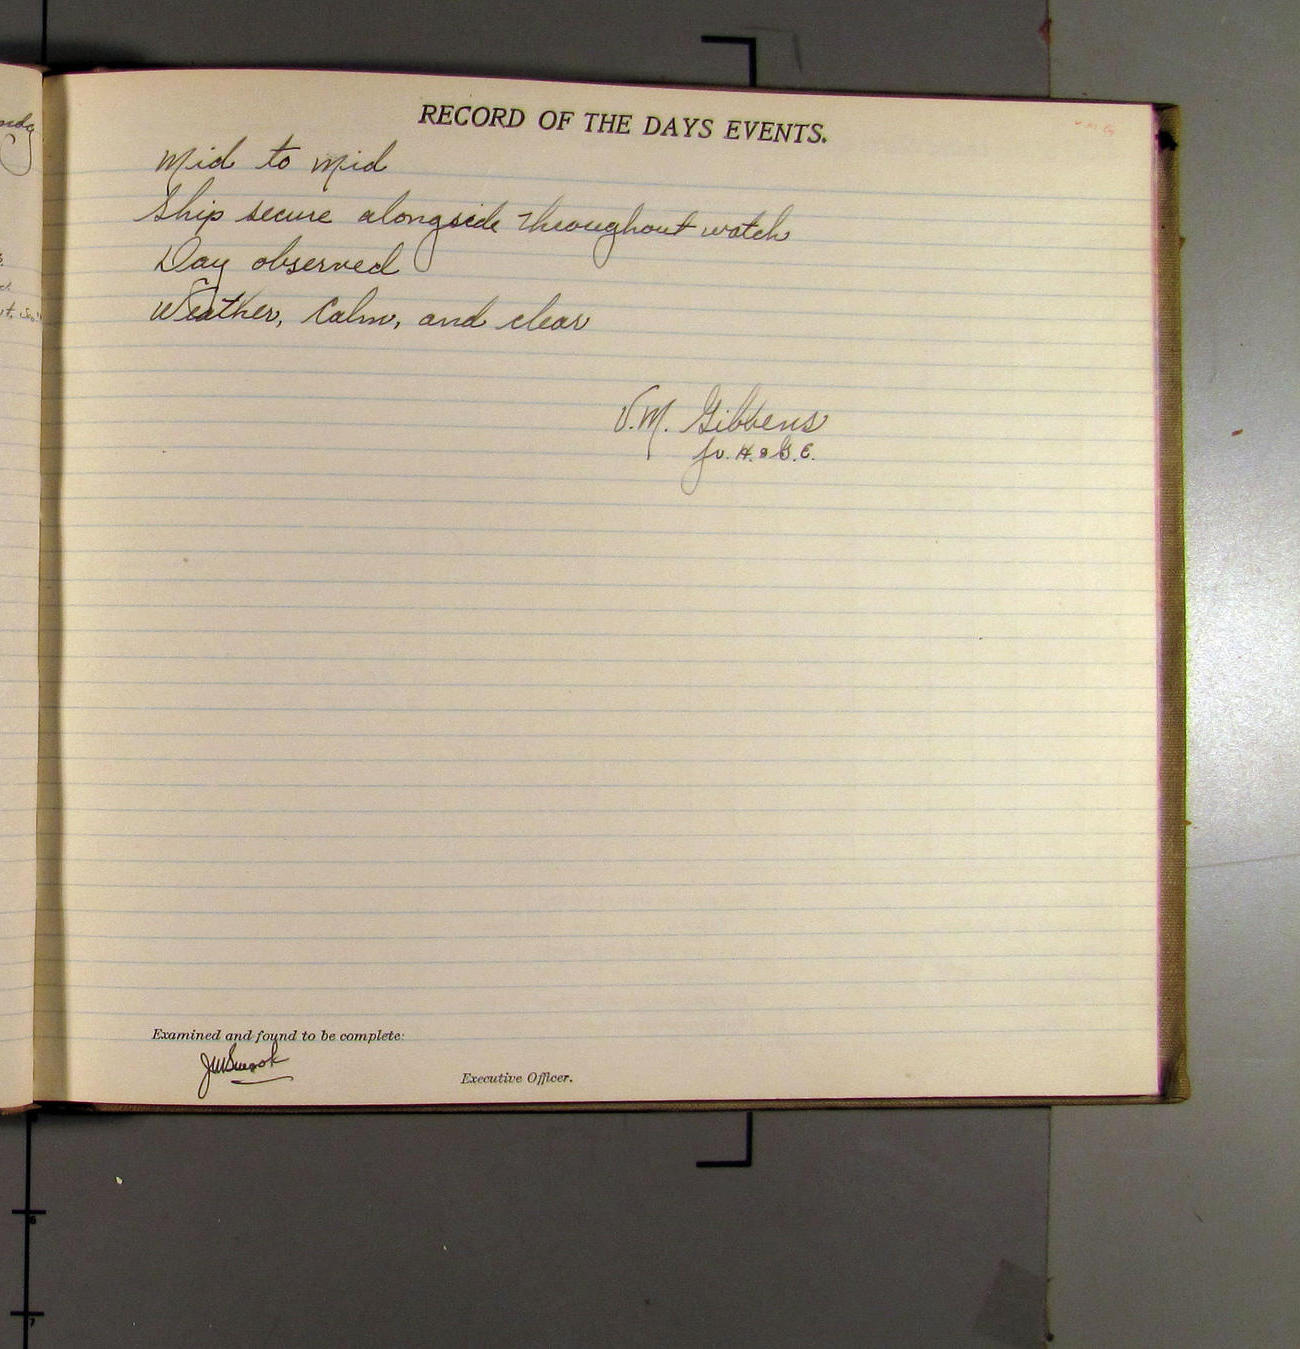 RECORD OF THE DAYS EVENTS.
Mid to Mid
Ship secure alongside throughout watch
Day observed
Weather, Calm, and clear
V. M. Gibbens
Jr. H. & G. E.
Examined and found to be complete:
Executive Officer.
6
7